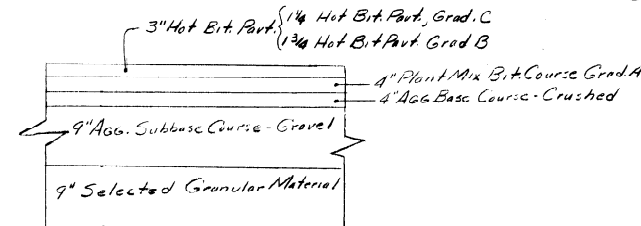 3" Hot Bit. Pavt. { 1¼ Hot Bit. Pavt., Grad. C
1¾ Hot Bit Pavt. Grad B
4" Plant Mix Bit. Course Grad. A
4" Agg Base Course - Crushed
9" Agg. Subbase Course - Gravel
9" Selected Granular Material